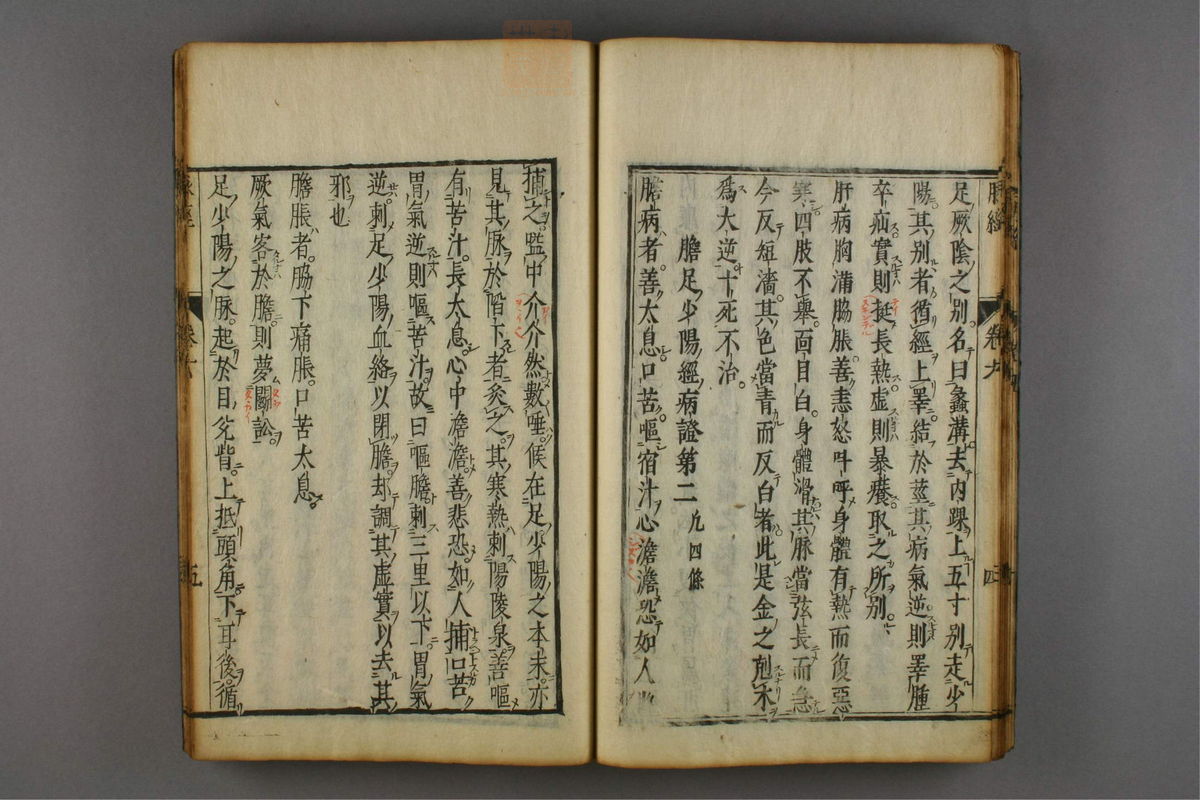 足厥陰之別名曰蠡溝去内踝上五寸別走少
陽其別者循經上睪結於莖其病氣逆則睪腫
卒疝實則挺長熱虚則暴癢取之所別
肝病胸滿脇脹善恚怒叫呼身體有熱而復惡
寒四肢不舉面目白身體滑其脉當弦長而急
今反短濇其色當青而反白者此是金之剋木
爲大逆十死不治
膽足少陽經病證第二 凡四條
膽病者善太息口苦嘔宿汁心澹澹恐如人
捕之嗌中介介然數唾候在足少陽之本末亦
見其脉於陷下者灸之其寒熱刺陽陵泉善嘔
有苦汁長太息心中澹澹善悲恐如人捕口苦
胃氣逆則嘔苦汁故曰嘔膽刺三里以下胃氣
逆刺足少陽血絡以閉膽却調其虚實以去其
邪也
膽脹者脇下痛脹口苦太息
厥氣客於膽則夢鬭訟
足少陽之脉起於目兊眥上抵頭角下耳後循
脉經
卷六
四
五